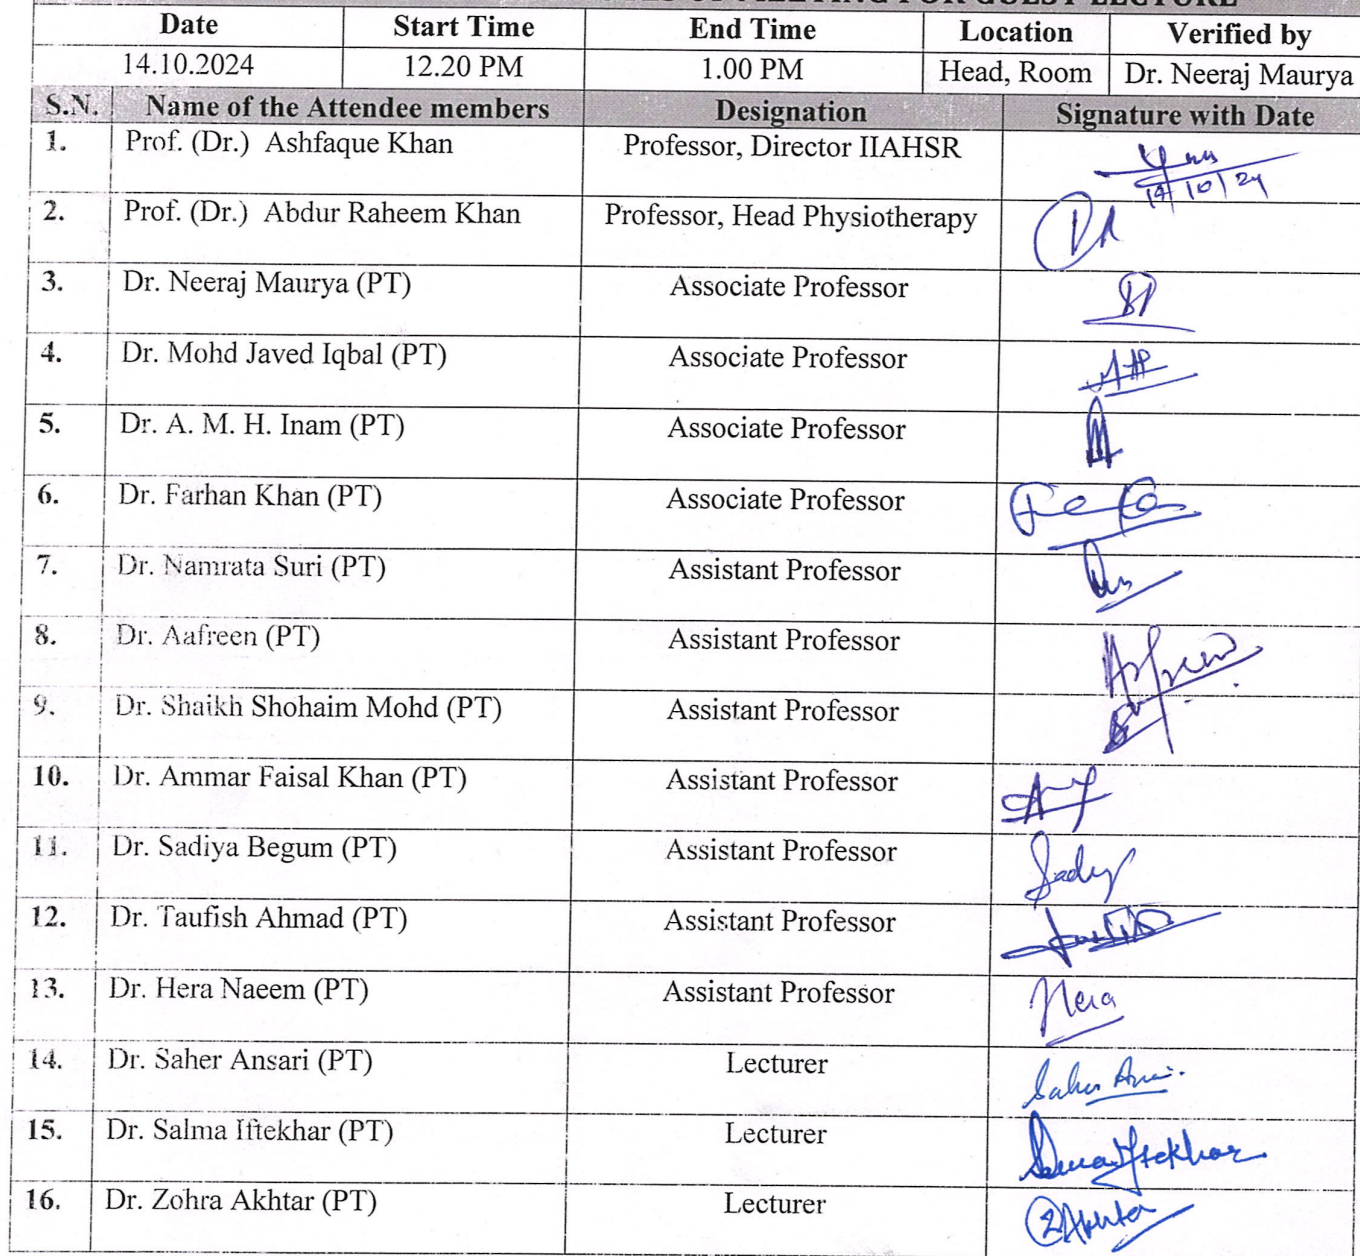 MEETING FOR GUEST LECTURE
Date Start Time End Time Location Verified by
14.10.2024 12.20 PM 1.00 PM Head, Room Dr. Neeraj Maurya
S.N. Name of the Attendee members Designation Signature with Date
1. Prof. (Dr.) Ashfaque Khan Professor, Director IIAHSR
14/10/24
2. Prof. (Dr.) Abdur Raheem Khan Professor, Head Physiotherapy
3. Dr. Neeraj Maurya (PT) Associate Professor
4. Dr. Mohd Javed Iqbal (PT) Associate Professor
5. Dr. A. M. H. Inam (PT) Associate Professor
6. Dr. Farhan Khan (PT) Associate Professor
7. Dr. Namrata Suri (PT) Assistant Professor
8. Dr. Aafreen (PT) Assistant Professor
9. Dr. Shaikh Shohaim Mohd (PT) Assistant Professor
10. Dr. Ammar Faisal Khan (PT) Assistant Professor
11. Dr. Sadiya Begum (PT) Assistant Professor
12. Dr. Taufish Ahmad (PT) Assistant Professor
13. Dr. Hera Naeem (PT) Assistant Professor Hera
14. Dr. Saher Ansari (PT) Lecturer
15. Dr. Salma Iftekhar (PT) Lecturer
16. Dr. Zohra Akhtar (PT) Lecturer